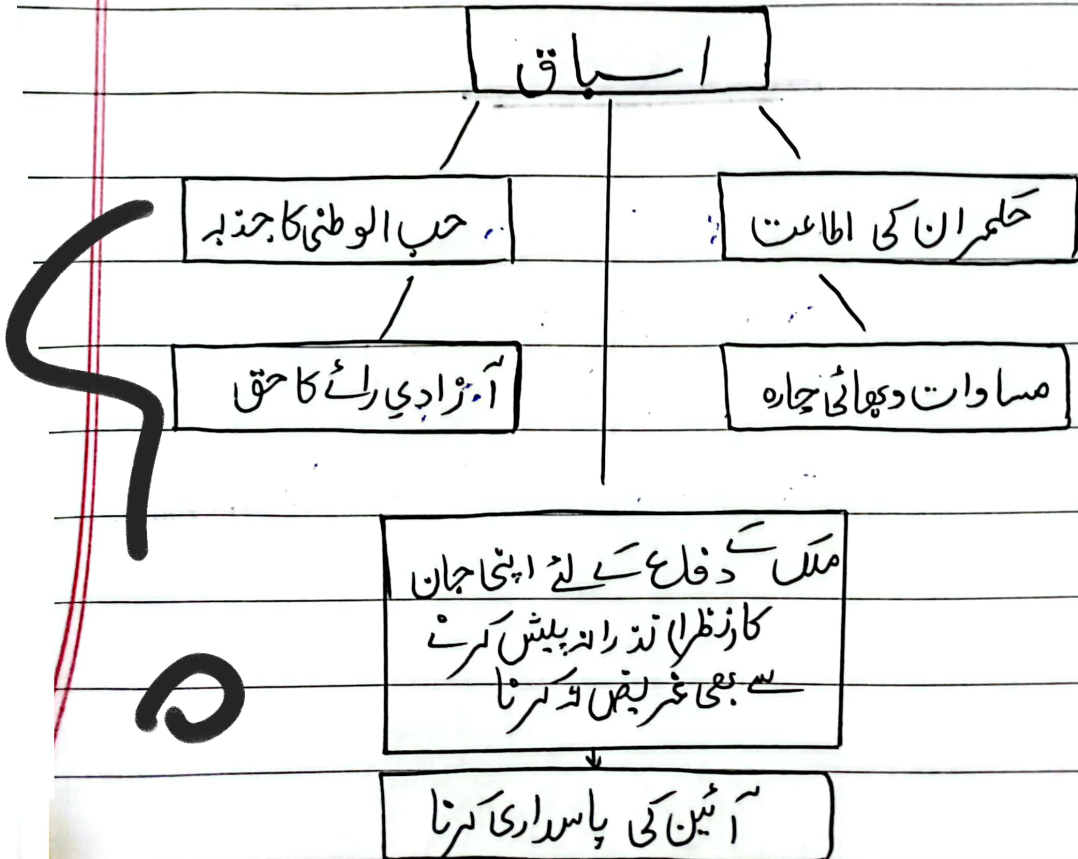 اسباق
حکمران کی اطاعت
حب الوطنی کا جذبہ
مساوات و بھائی چارہ
آزادي رائے کا حق
ملک کے دفاع کے لئے اپنی جان
کا نذرانہ پیش کرنے
سے بھی غریض نہ کرنا
آئین کی پاسداری کرنا